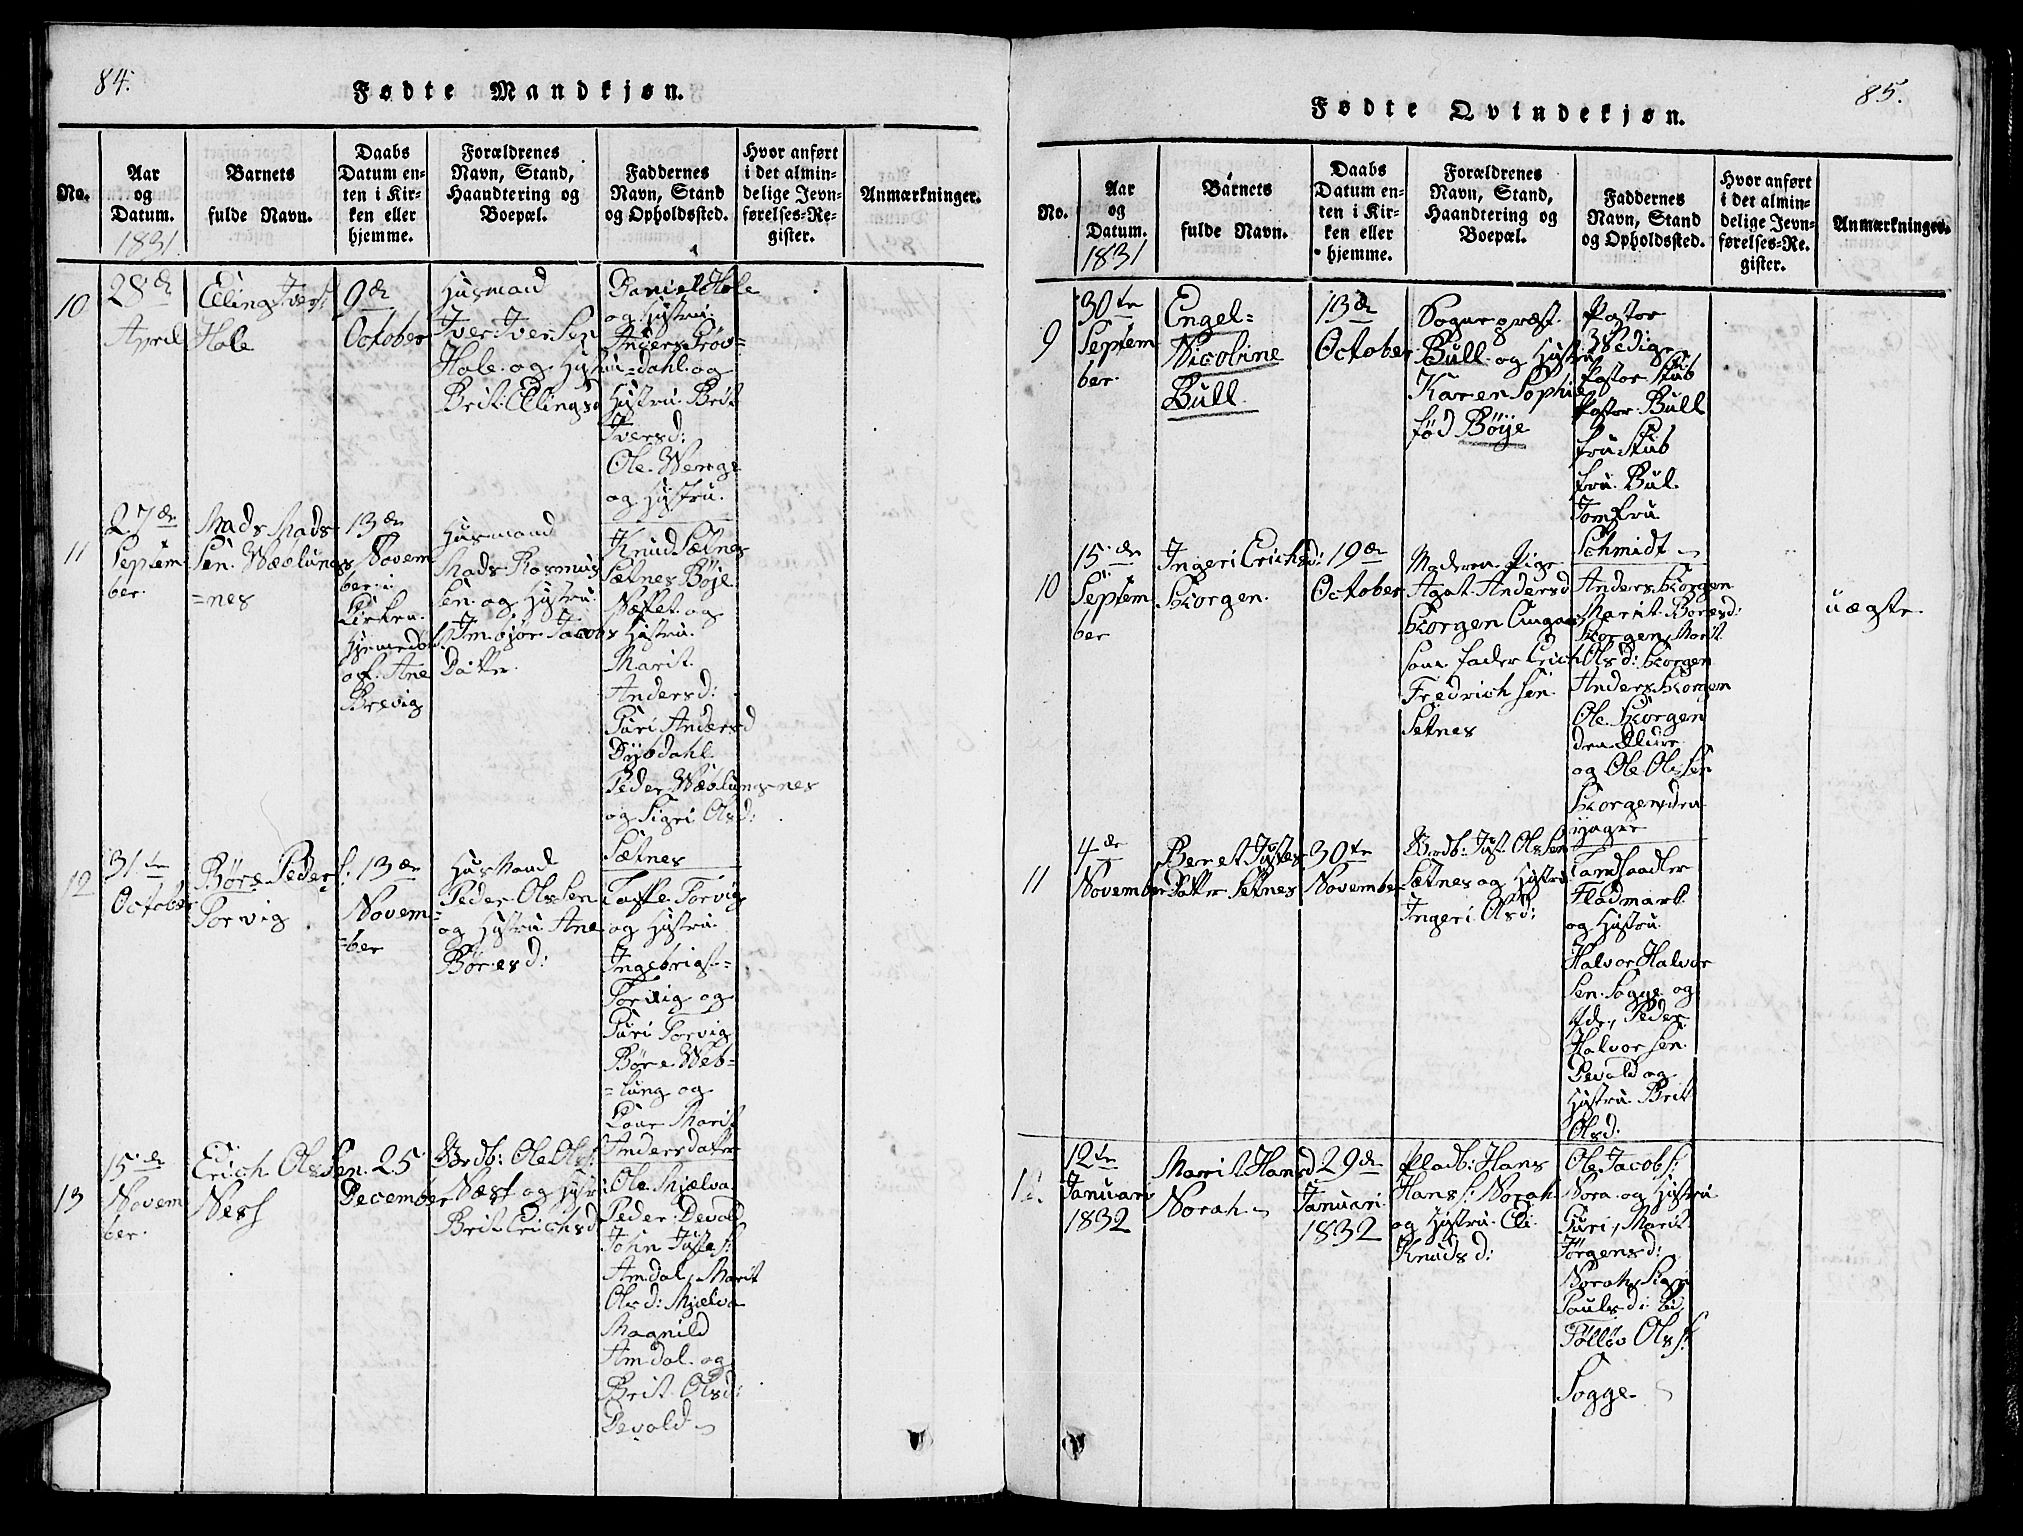 84.
Fødte Mandkjøn.
No.
Aar
og
Datum.
1831
Barnets
fulde Navn.
Daabs
Datum en-
ten i Kir-
ken eller
hjemme.
Forældrenes
Navn, Stand,
Haandtering og
Boepæl.
Faddernes
Navn, Stand
og Opholdssted.
Hvor anført
i det almin-
delige Jevn-
førelses-Re-
gister.
Anmærkninger.
10
28de
April
Elling Ivers:
Hole
9de
October
Husmand
Iver Iversen
Hole og Hustru
Brit Ellingsd
Daniel Hole
og Hustru.
Anders Brøv=
=dahl og
Hustru Brit
Iversd:
Ole Wenge
og Hustru.
11
27de
Septem
ber.
Mads Mads
Sen. Wæblungs
=nes
13de
Novem
ber i
Kirken.
Hjemedøbt
af Ane
Brevig
Husmand
Mads Rasmus
Sen og Hustru
Imbjør Jacobs
Datter.
Knud Sætnes
Sætnes Böje
Næsset og
Hustru.
Marit
Andersd:
Guri Andersd
Dybdahl
Peder Wæblungsnes
og Sigri Olsd:
Sætnes
12
31te
October
Børe Peders:
Torvig
13de
Novem=
=ber
Husmand
Peder Olssen
og Hustru Ane
Børesd:
Taffe Torvig
og Hustru.
Ingebrigt=
Torvig og
Guri Torvig
Børe Web=
=lung og
Kone Marit
Andersdatter
13
15de
Novem
ber.
Erich Olssen
Ness
25
December
Brdb: Ole Ols:
Næss og Hustru
Brit Erichsd
Ole Mjelva
Peder Devold
John Justes:
Amdal, Marit
Olsd: Mjelva
Magnild
Amdal og
Brit Olsd:
Devold
85.
Fødte Qvindekjøn.
No.
Aar
og
Datum.
1831
Barnets
fulde Navn.
Daabs
Datum en-
ten i Kir-
ken eller
hjemme.
Forældrenes
Navn, Stand,
Haandtering og
Boepæl.
Faddernes
Navn, Stand
og Opholdssted.
Hvor anført
i det almin-
delige Jevn-
førelses-Re-
gister.
Anmærkninger.
9
30te
Septem
ber.
Engel=
Nicoline
Bull.
13de
October
Sognepræst
Bull og Hustru
Karen Sophie
fød Böye
Pastor
Wedige
Pastor Stub
Pastor Bull
Fru Stub
Fru. Bul.
Jomfru
Schmidt
10
15de
Septem
ber
Ingeri Erichsd:
Skorgen.
19de
October
Moderen Pige
Agat Andersd
Skorgen Angivet
som Fader Erich
Fredrichsen
Setnes
Anders Skorgen
Marit Boresd:
Skorgen, Marit
Olsd: Skorgen
Anders Skorgen
Ole Skorgen
den Eldre
og Ole Olssen
Skorgen den
yngre
uægte.
11
4de
November
Beret Justes
Datter Setnes
30te
November
Brdb: Just Olssen
Sætnes og Hustru
Ingeri Olsd:
Landhandler
Fladmark
og Hustru
Halvor Halvor
Sen. Sogge og
Peder
Halvorsen
Devold og
Hustru Brit
Olsd.
12.
12te
Januari
1832
Marit Hansd
Norah
29de
Januari
1832
Pladb: Hans
Hanss: Norah
og Hustru Eli
Knudsd:
Ole Jacobs:
Nora og Hustru
Guri, Marit
Jörgensd:
Norah,
Paulsd:
Tølløv Olss:
Sogge